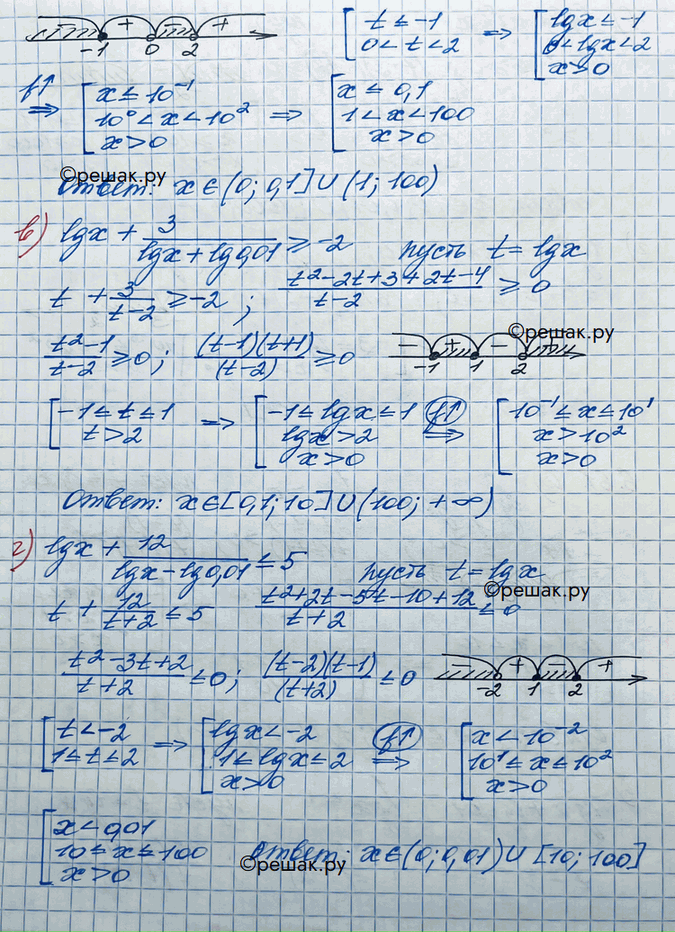 - + - +
-1 0 2
[ t ≤ -1
0 < t < 2 => [ lgx ≤ -1
0 < lgx < 2
x > 0
f↑ => [ x ≤ 10⁻¹
10⁰ < x < 10² => [ x ≤ 0,1
1 < x < 100
x > 0 x > 0
©решак.ру
Ответ: x ∈ (0; 0,1] ∪ (1; 100)
в) lgx + 3/(lgx + lg0,01) ≥ -2 пусть t = lgx
t + 3/(t-2) ≥ -2 ; (t²-2t+3+2t-4)/(t-2) ≥ 0
©решак.ру
(t²-1)/(t-2) ≥ 0 ; ((t-1)(t+1))/(t-2) ≥ 0 - + - +
-1 1 2
[ -1 ≤ t ≤ 1
t > 2 => [ -1 ≤ lgx ≤ 1
lgx > 2
x > 0 f↑ => [ 10⁻¹ ≤ x ≤ 10¹
x > 10²
x > 0
Ответ: x ∈ [0,1; 10] ∪ (100; +∞)
г) lgx + 12/(lgx - lg0,01) ≤ 5 пусть t = lgx
©решак.ру
t + 12/(t+2) ≤ 5 (t²+2t-5t-10+12)/(t+2) ≤ 0
(t²-3t+2)/(t+2) ≤ 0 ; ((t-2)(t-1))/(t+2) ≤ 0 - + - +
-2 1 2
[ t < -2
1 ≤ t ≤ 2 => [ lgx < -2
1 ≤ lgx ≤ 2
x > 0 f↑ => [ x < 10⁻²
10¹ ≤ x ≤ 10²
x > 0
[ x < 0,01
10 ≤ x ≤ 100
x > 0 Ответ: x ∈ (0; 0,01) ∪ [10; 100]
©решак.ру